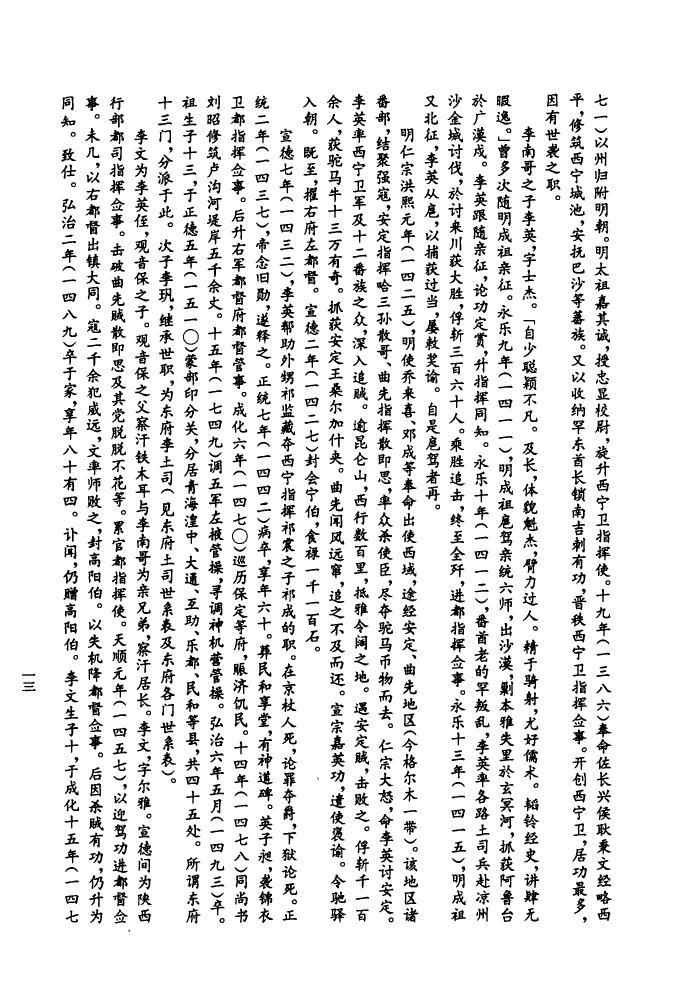 七一)以州归附明朝。明太祖嘉其诚,授忠显校尉,旋升西宁卫指挥使。十九年(一三八六)奉命佐长兴侯耿秉文经略西
平,修筑西宁城池,安抚巴沙等蕃族。又以收纳罕东首长锁南吉剌有功,晋秩西宁卫指挥佥事。开创西宁卫,居功最多,
因有世袭之职。
李南哥之子李英,字士杰。「自少聪颖不凡。及长,体貌魁杰,臂力过人。精于骑射,尤好儒术。韬铃经史,讲肄无
暇逸。」曾多次随明成祖亲征。永乐九年(一四一一),明成祖扈驾亲统六师,出沙漠,剿本雅失里於玄冥河,抓获阿鲁台
於广漠戍。李英跟随亲征,论功定赏,升指挥同知。永乐十年(一四一二),番首老的罕叛乱,李英率各路土司兵赴凉州
沙金城讨伐,於讨来川获大胜,俘斩三百六十人。乘胜追击,终至全歼,进都指挥佥事。永乐十三年(一四一五),明成祖
又北征,李英从扈,以捕获过当,屡敕奖谕。自是扈驾者再。
明仁宗洪熙元年(一四二五),明使乔来喜、邓成等奉命出使西域,途经安定、曲先地区(今格尔木一带)。该地区诸
番部,结聚强寇,安定指挥哈三孙散哥、曲先指挥散即思,率众杀使臣,尽夺驼马币物而去。仁宗大怒,命李英讨安定。
李英率西宁卫军及十二番族之众,深入追贼。逾昆仑山,西行数百里,抵雅令阔之地。遇安定贼,击败之。俘斩千一百
余人,获驼马牛十三万有奇。抓获安定王桑尔加什夹。曲先闻风远窜,追之不及而还。宣宗嘉英功,遣使褒谕。令驰驿
入朝。既至,擢右府左都督。宣德二年(一四二七)封会宁伯,食禄一千一百石。
宣德七年(一四三二),李英帮助外甥祁监藏夺西宁指挥祁震之子祁成的职。在京杖人死,论罪夺爵,下狱论死。正
统二年(一四三七),帝念旧勋,遂释之。正统七年(一四四二)病卒,享年六十。葬民和享堂,有神道碑。英子昶,袭锦衣
卫都指挥佥事。后升右军都督府都督管事。成化六年(一四七〇)巡历保定等府,赈济饥民。十四年(一四七八)同尚书
刘昭修筑卢沟河堤岸五千余丈。十五年(一七四九)调五军左掖管操,寻调神机营管操。弘治六年五月(一四九三)卒。
祖生子十三,于正德五年(一五一〇)蒙部印分关,分居青海湟中、大通、互助、乐都、民和等县,共四十五处。所谓东府
十三门,分派于此。次子李玥,继承世职,为东府李土司(见东府土司世系表及东府各门世系表)。
李文为李英侄,观音保之子。观音保之父察汗铁木耳与李南哥为亲兄弟,察汗居长。李文,字尔雅。宣德间为陕西
行部都司指挥佥事。击破曲先贼散即思及其党脱脱不花等。累官都指挥使。天顺元年(一四五七),以迎驾功进都督佥
事。未几,以右都督出镇大同。寇二千余犯威远,文率师败之,封高阳伯。以失机降都督佥事。后因杀贼有功,仍升为
同知。致仕。弘治二年(一四八九)卒于家,享年八十有四。讣闻,仍赠高阳伯。李文生子十,于成化十五年(一四七
一三